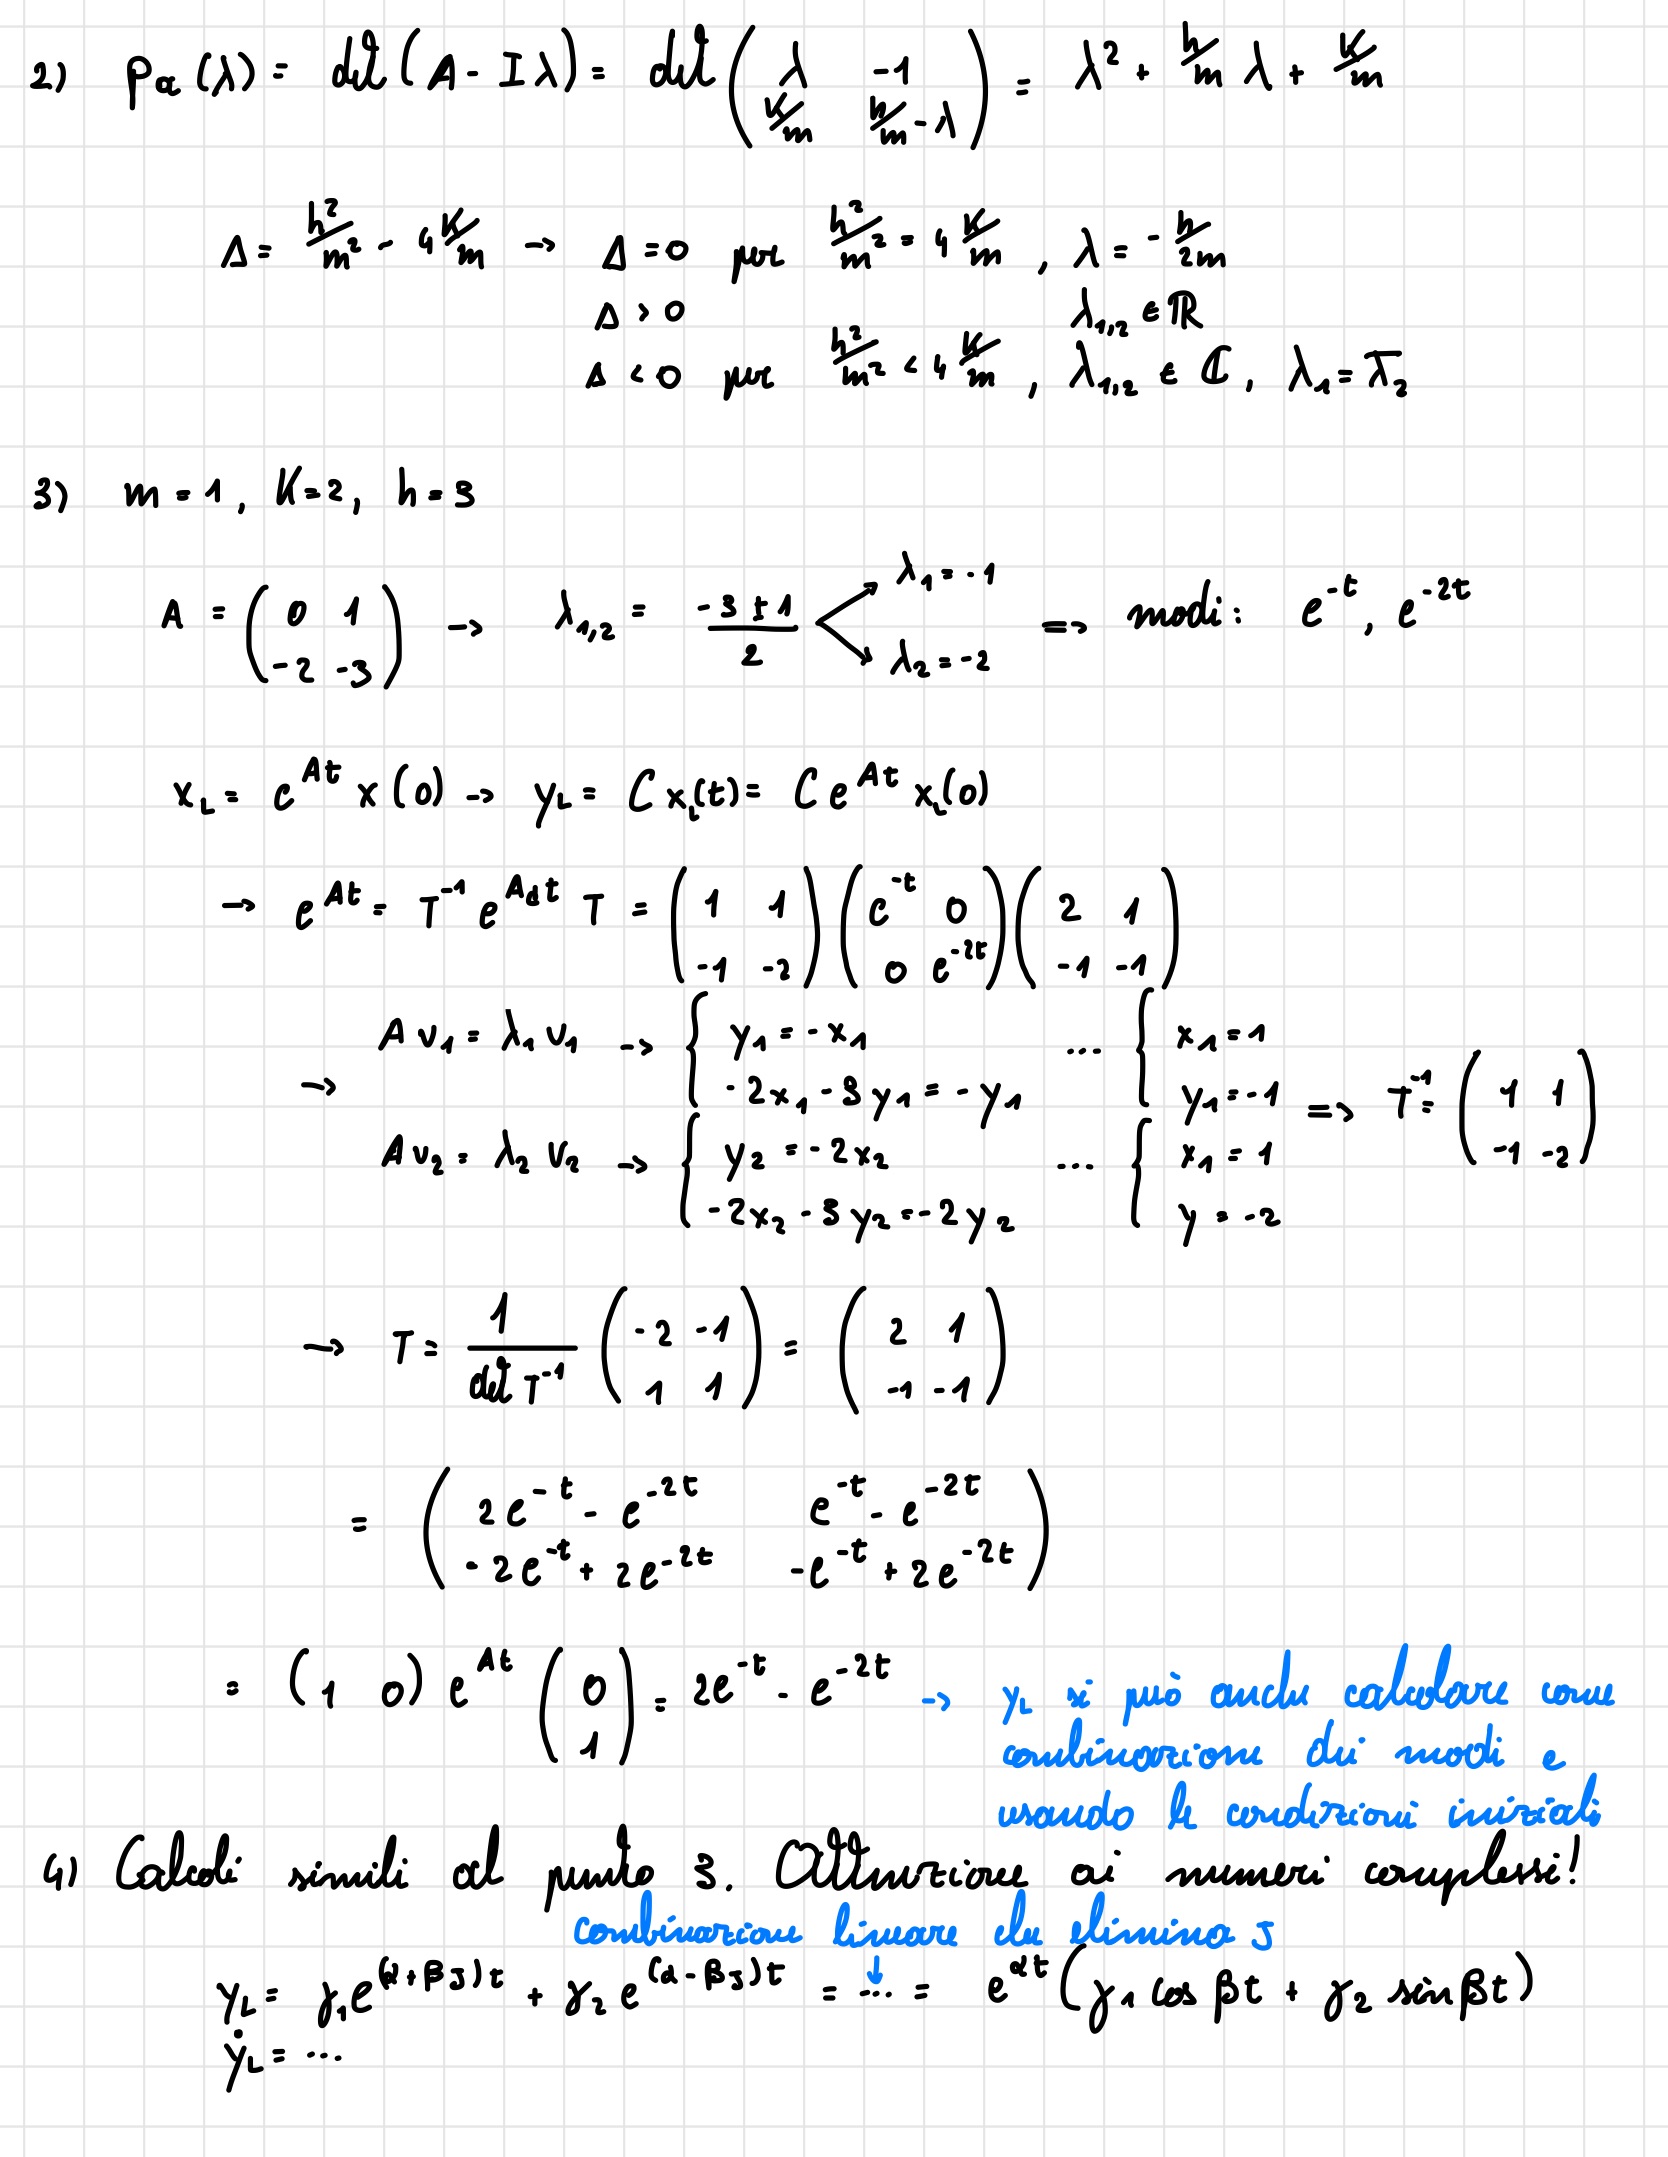 2) Pa(λ) = det(A - Iλ) = det( λ -1 ; K/m h/m - λ ) = λ² + h/m λ + K/m
Δ = h²/m² - 4 K/m → Δ = 0 per h²/m² = 4 K/m , λ = - h/2m
Δ > 0 λ1,2 ∈ ℝ
Δ < 0 per h²/m² < 4 K/m , λ1,2 ∈ ℂ, λ1 = λ̄2
3) m = 1, K = 2, h = 3
A = ( 0 1 ; -2 -3 ) → λ1,2 = (-3 ± 1)/2 λ1 = -1 λ2 = -2 => modi: e^-t, e^-2t
xL = e^At x(0) → yL = C xL(t) = C e^At xL(0)
→ e^At = T^-1 e^Adt T = ( 1 1 ; -1 -2 ) ( e^-t 0 ; 0 e^-2t ) ( 2 1 ; -1 -1 )
→ A v1 = λ1 v1 → { y1 = -x1 ; -2x1 - 3y1 = -y1 ... { x1 = 1 ; y1 = -1
A v2 = λ2 v2 → { y2 = -2x2 ; -2x2 - 3y2 = -2y2 ... { x1 = 1 ; y = -2 => T^-1 = ( 1 1 ; -1 -2 )
→ T = 1/det T^-1 ( -2 -1 ; 1 1 ) = ( 2 1 ; -1 -1 )
= ( 2e^-t - e^-2t e^-t - e^-2t ; -2e^-t + 2e^-2t -e^-t + 2e^-2t )
= (1 0) e^At ( 0 ; 1 ) = 2e^-t - e^-2t → yL si può anche calcolare come
combinazione dei modi e
usando le condizioni iniziali
4) Calcoli simili al punto 3. Attenzione ai numeri complessi!
combinazione lineare che elimina J
yL = γ1 e^(α+βJ)t + γ2 e^(α-βJ)t = ... = e^αt (γ1 cos βt + γ2 sin βt)
ẏL = ...